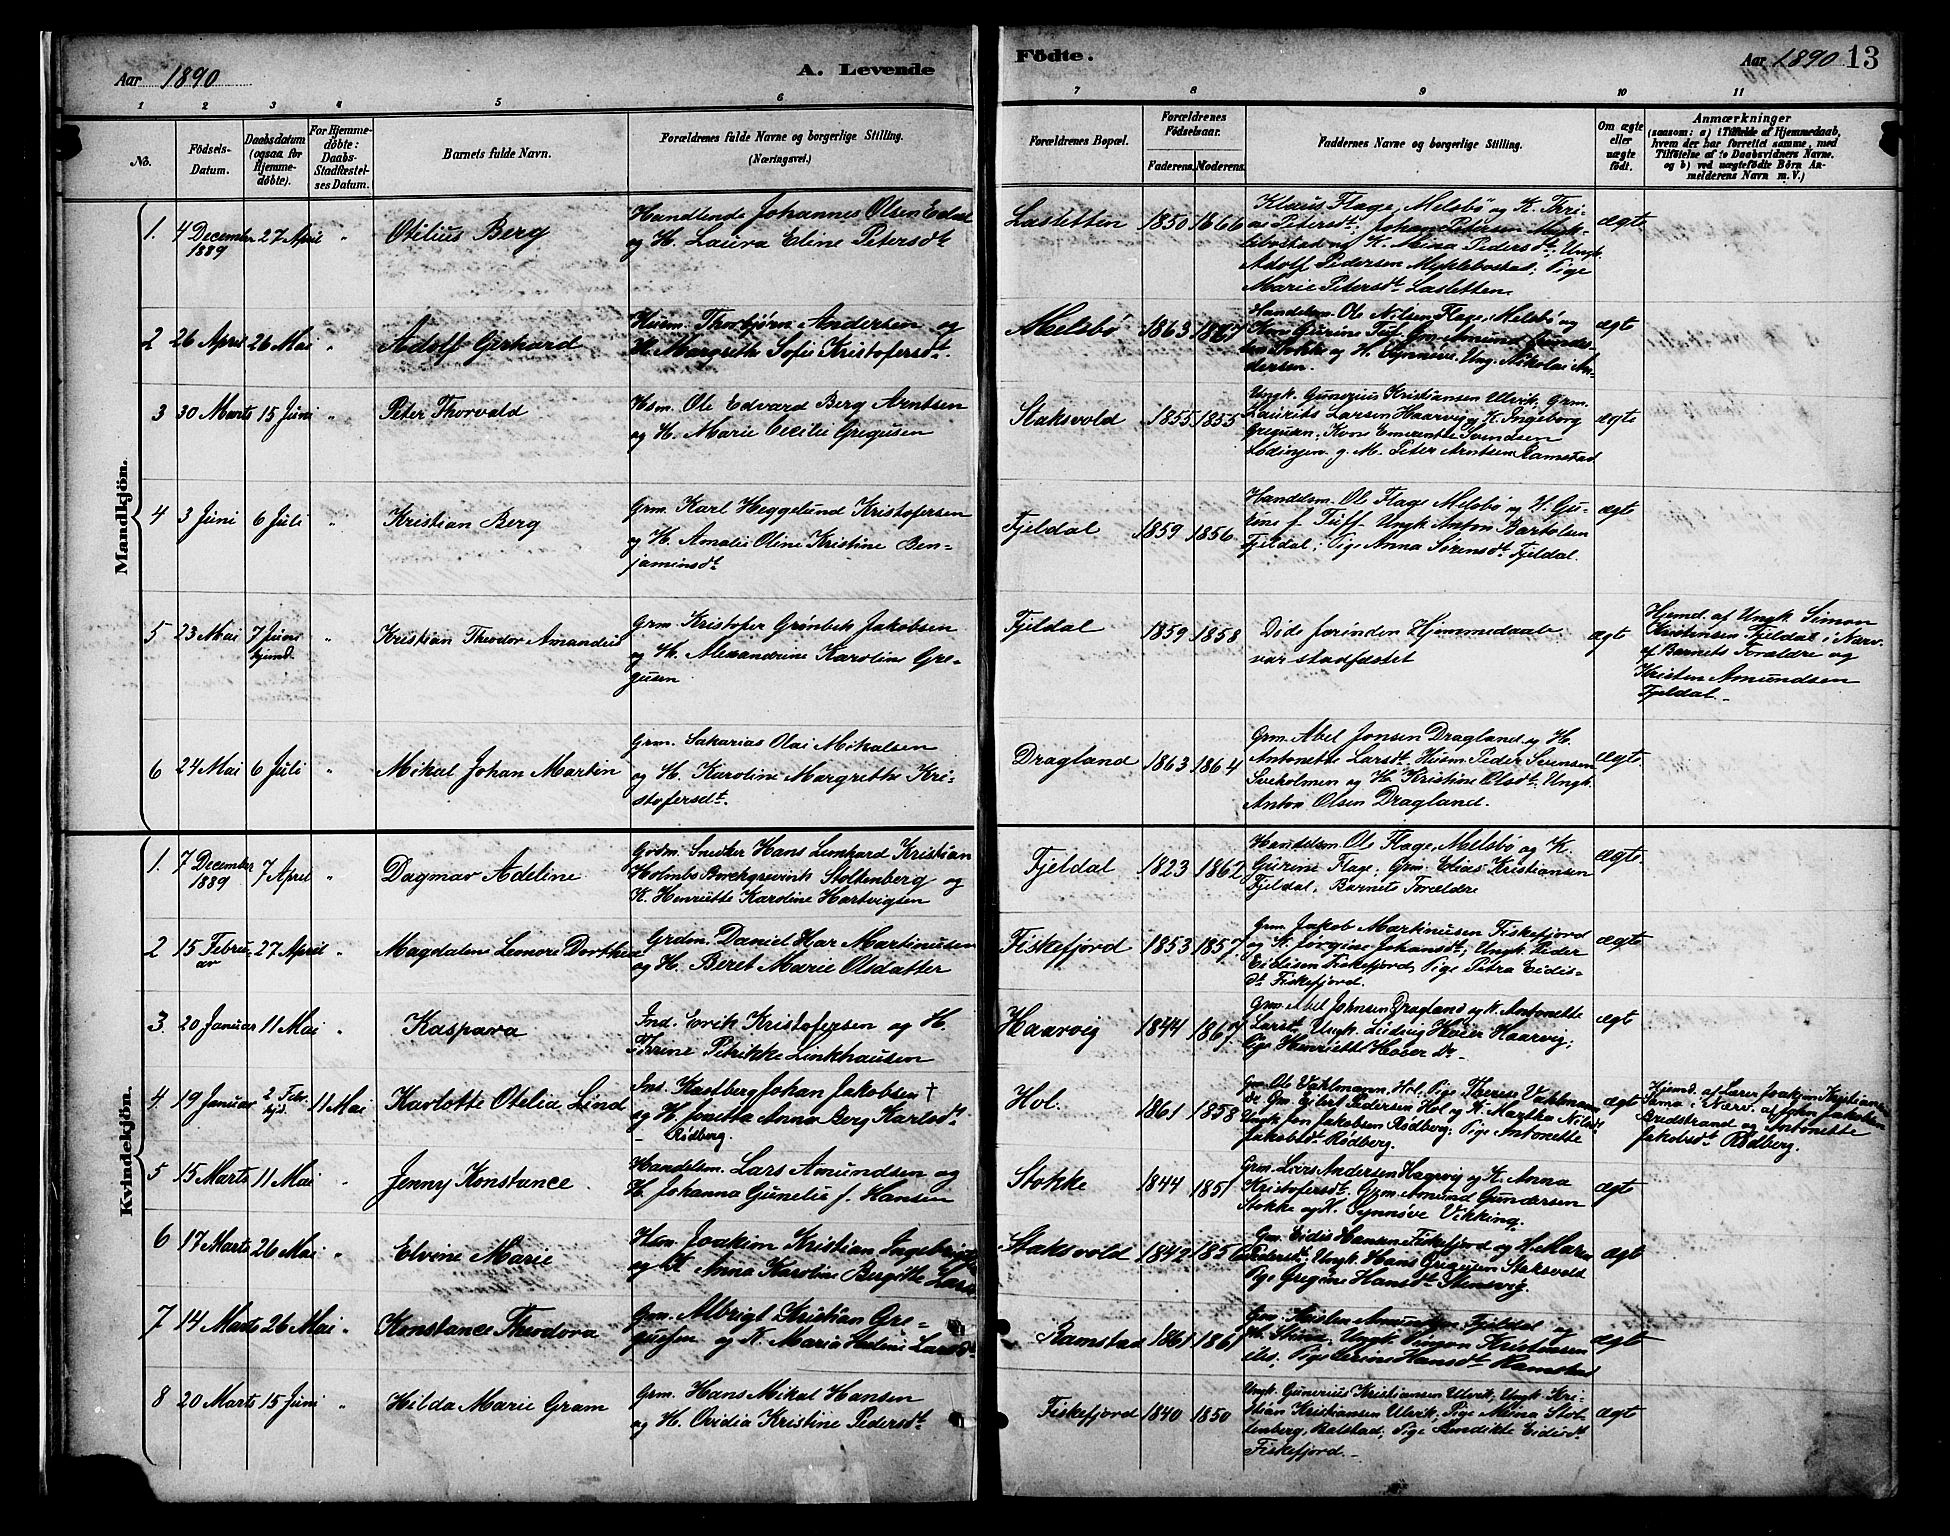 Aar 1890
A. Levende
Födte.
Aar 1890
13
1 2 3 4 5 6 7 8 9 10 11
No.
Födsels-Datum.
Daabsdatum (ogsaa for Hjemme-döbte).
For Hjemme-döbte: Daabs-Stadfæstel-ses Datum.
Barnets fulde Navn.
Forældrenes fulde Navne og borgerlige Stilling.
(Næringsvei.)
Forældrenes Bopæl.
Forældrenes Födselsaar.
Faderens. Moderens.
Faddernes Navne og borgerlige Stilling.
Om ægte eller uægte født.
Anmærkninger
(saasom: a) i Tilfælde af Hjemmedaab, hvem der har forrettet samme, med Tilföielse af to Daabsvidners Navne, og b) ved uægtefödte Börn Anmelderens Navn m. V.)
Mandkjön.
1. 4 December 1889 27 April " Otilius Berg
Handlende Johannes Olsen
og H. Laura Eline Petersdt
Lasletten 1850 1866
Klaus Flage, Melsbø og K.
Petersdt, Johan Petersen
og K. Meina Pedersdt, Ungk.
Adolf Pedersen Myklebostad, Pige
Marie Petersdt Lasletten.
ægte
2 26 April 26 Mai " Adolf Gerhard
Husm. Thorbjørn Andersen og
H. Margrethe Sofie Kristofersdt.
Melsbø 1863 1867
Handelsm. Ole Nilsen Flage, Melsbø og
Kone Gurine Grm. Amund
Stokke og H. Synnøve. Ung. Nikolai An-
dersen.
ægt
3 30 Marts 15 Juni " Peter Thorvald
Hsm. Ole Edvard Berg Arntsen
og H. Marie Cecilie Gregusen
Staksvold 1855 1855
Ungk. Gunerius Kristiansen Ulvik, Grm.
Laurits Larsen Haarvig og K. Ingeborg
Gregusen, Kone Emerentse Svendsen
Lødingen. g. M. Peter Arntsen Ramstad
ægte
4 3 Juni 6 Juli " Kristian Berg
Grm. Karl Heggelund Kristofersen
og H. Amalie Oline Kristine Ben-
jaminsdt
Fjeldal 1859 1856
Handelsm. Ole Flage Melsbø og H. Gu-
rine f. Tuff. Ungk Anton Bartolsen
Fjeldal; Pige Anna Sørensdt Fjeldal.
ægt
5 23 Mai 7 Juni hjemd. " Kristian Theodor Amandus
Grm Kristofer Grønbek Jakobsen
og H. Alexandrine Karoline Gre-
gusen
Fjeldal 1859 1858
Døde forinden Hjemmedaab
var stadfæstet
ægt
Hjemd. af Ungk. Simon
Kristensen Fjeldal i Nærv.
af Barnets Forældre og
Kristen Amundsen
Fjeldal.
6 24 Mai 6 Juli " Mikal Johan Martin
Grm. Sakarias Olai Mikalsen
og H. Karoline Margrethe Kri-
stofersdt.
Dragland 1863 1864
Grm Abel Jonsen Dragland og H.
Antonette Larsdt, Husm. Peder Svensen
Sveholmen og H. Kristine Olsdt. Ungk.
Anton Olsen Dragland.
ægte
Kvindekjön.
1. 7 December 1889 7 April " Dagmar Adeline
Grdm. Snedker Hans Lemhard Kristian
Holmbo Borchgrevink Stoltenberg og
K. Henriette Karoline Hartvigsen
Fjeldal 1823 1862
Handelsm Ole Flage, Melsbø og K.
Gurine Flage, Grm. Elias Kristiansen
Fjeldal, Barnets Forældre
ægte.
2 15 Februar 27 April " Magdalene Leonore Dorthea
Grdm. Daniel Har Martinusen
og H. Beret Marie Olsdatter
Fiskefjord 1853 1857.
Grm. Jakob Martinusen Fiskefjord
og K. Jørgine Johansdt; Ungk. Peder
Eidisen Fiskefjord, Pige Petra Eidis-
dt Fiskefjord.
ægte
3. 20 Januar 11 Mai " Kaspara
Ind. Erik Kristofersen og H.
Irene Petrikke Linkhausen
Haarvig 1844 1867.
Grm Abel Johnsen Dragland og K. Antonette
Larsdt, Ungk. Ludvig Haarvig;
Pige Henriette Do
ægt
4. 19 Januar 2 Febr. hjd. 11 Mai Karlotte Otelia Lind
Ins. Kastberg Johan Jakobsen †
og H. Anna Berg Karlsdt
Rødberg.
Hol. 1861 1858
Gm. Ole Vahlmann, Hol, Pige Therese Vahlmann
Do Gm. Pedersen Hol og K. Martha Nilsdt
Ungk Jon Jakobsen Rødberg; Pige Antonette
Jakobsdt Rødberg.
ægt
Hjemd. af Lars Joakim Kristiansen
i Nærv. af John Jakobsen
Bredstrand og Antonette
Jakobsdt Rødberg.
5 15 Marts 11 Mai " Jenny Konstance
Handelsm. Lars Amundsen og
H. Johanna Gunelie f. Hansen
Stokke 1844 1851
Grm. Lars Andersen Haarvig og K. Anna
Kristofersdt. Grm Amund Gundersen
Stokke og K. Synnøve Vikking.
ægt
6 17 Marts 26 Mai " Elvine Marie
Hsm. Joakim Kristian
og K Anna Karoline Bergitte
Staksvold 1842 1856
Gm. Eidis Hansen Fiskefjord og H. Maren
Pedersdt. Ungk. Hans Gregusen Staksvold
Pige Gregine Hansdt Stensvig.
ægt
7 14 Marts 26 Mai " Konstance Theodora
Grm. Albrigt Kristian Gre-
gusen og K. Maria Helene Larsdt
Ramstad 1861 1861
Gm. Kristen Amundsen Fjeldal og
Ungk Simon Kristensen
Pige Hansdt Ramstad
ægt
8 20 Marts 15 Juni " Hilda Marie Gram
Grm. Hans Mikal Hansen
og H. Ovidia Kristine Pedersdt
Fiskefjord 1840 1850
Ungk. Gunerius Kristiansen Ulvik, Ungk. Kri-
stian Kristiansen Ulvik, Pige Meina Stol-
tenberg, Balstad; Pige Bendikte Eidisdt
Fiskefjord.
ægte